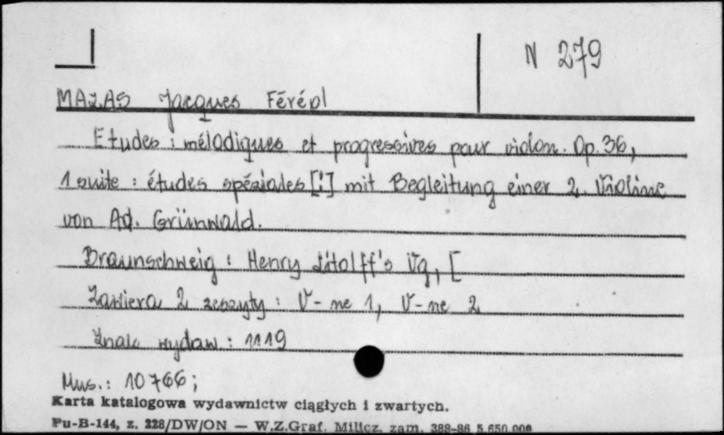 N 279
MAZAS Jacques Féréol
Etudes : mélodiques et progressives pour violon. Op. 36,
1 suite : études spéziales [!] mit Begleitung einer 2. Violine
von Ad. Grünwald.
Braunschweig : Henry Litolff's Vg, [
Zawiera 2 zeszyty : V-ne 1, V-ne 2
Znak wydaw. : 1119
Mus.: 10766;
Karta katalogowa wydawnictw ciągłych i zwartych.
Pu-B-144, z. 228/DW/ON — W.Z.Graf. Milicz. zam. 388-86 5.650.000